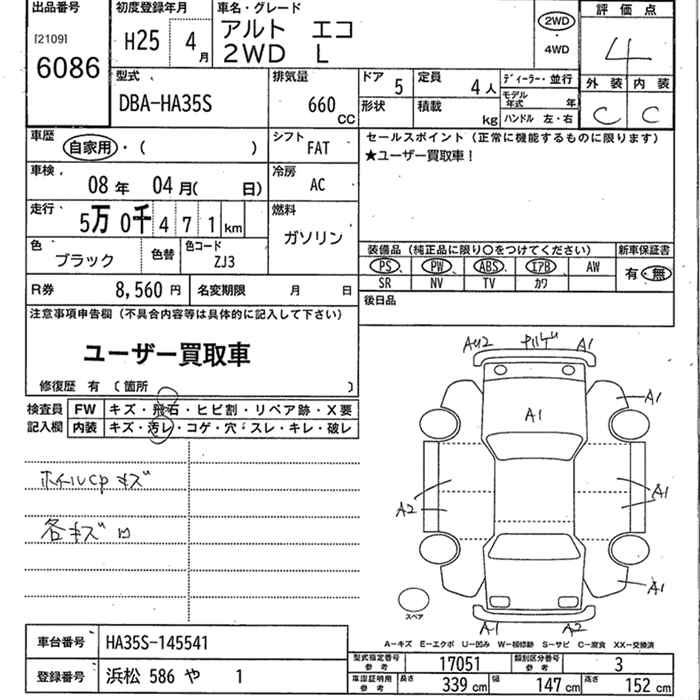 出品番号
[2109]
6086
初度登録年月
H25 4月
車名・グレード
アルト エコ
2WD L
2WD
・
4WD
評価点
4
外装 内装
C C
型式
DBA-HA35S
排気量
660
CC
ドア 5
定員 4人
形状
積載 kg
ディーラー・並行
モデル年式 年
ハンドル 左・右
車歴
自家用・( )
シフト
FAT
車検
08年 04月( 日)
冷房
AC
走行
5万 0千 4 7 1 km
燃料
ガソリン
色
ブラック
色替
色コード
ZJ3
セールスポイント(正常に機能するものに限ります)
★ユーザー買取車!
装備品(純正品に限り○をつけてください)
PS、PW、ABS、エアB、AW
SR NV TV カワ
新車保証書
有・無
R券 8,560円
名変期限 月 日
後日品
注意事項申告欄(不具合内容等は具体的に記入して下さい)
ユーザー買取車
修復歴 有〔箇所 〕
検査員記入欄
FW キズ・飛石・ヒビ割・リペア跡・X要
内装 キズ・汚レ・コゲ・穴・スレ・キレ・破レ
ホイルCPキズ
各キズ凹
AU2 A1
A1
A1
A2
A1
A1
スペア
A1 A2
A-キズ E-エクボ U-凹み W-補修跡 S-サビ C-腐食 XX-交換済
車台番号 HA35S-145541
登録番号 浜松 586 や 1
型式指定番号参考 17051
類別区分番号参考 3
車庫証明用参考
長さ 339cm
幅 147cm
高さ 152cm